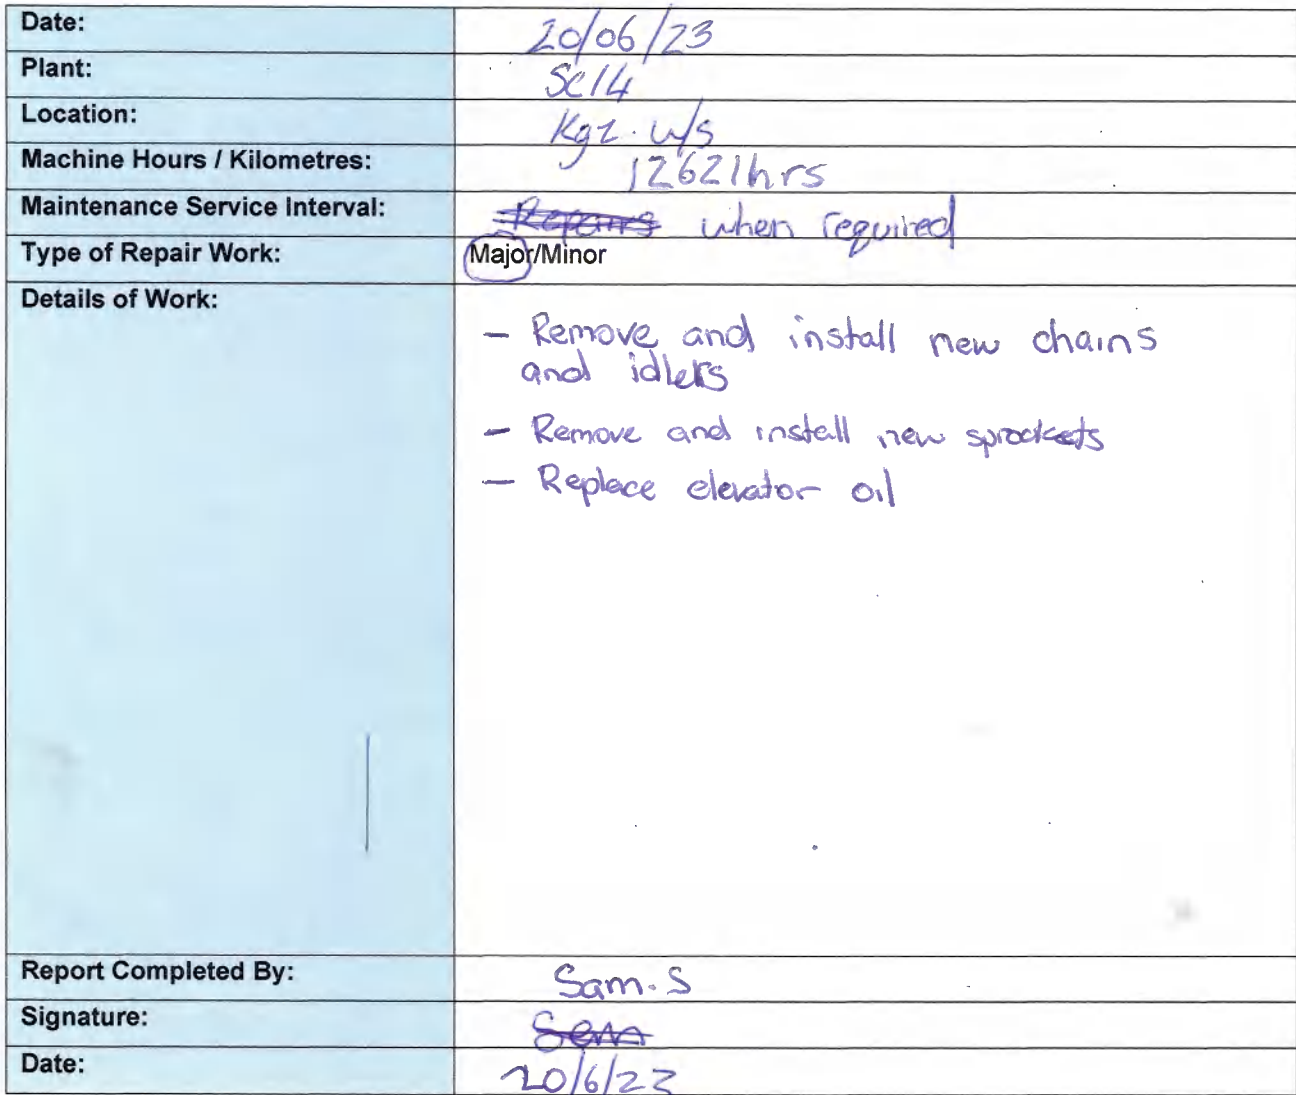 Date: 20/06/23
Plant: SC14
Location: Kgz. w/s
Machine Hours / Kilometres: 12621hrs
Maintenance Service Interval: Repairs when required
Type of Repair Work: Major/Minor
Details of Work:
- Remove and install new chains
and idlers
- Remove and install new sprockets
- Replace elevator oil
Report Completed By: Sam.S
Signature: Sam
Date: 20/6/23